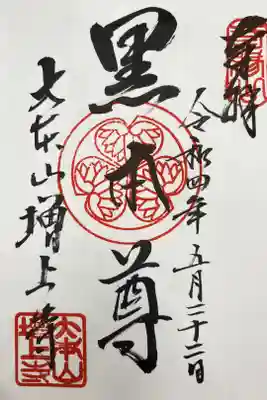 奉拝
令和四年 五月二十二日
黒本尊
大本山増上寺
大本山増上寺